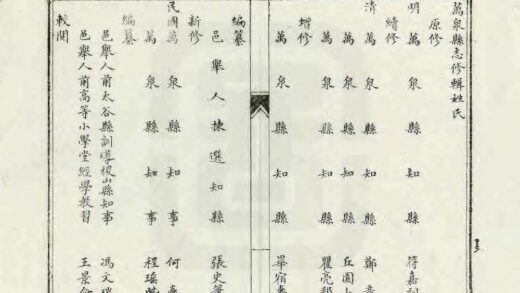 萬泉縣志修輯姓氏
原修
明 萬泉縣知縣 符嘉
續修
清 萬泉縣知縣 鄭
萬泉縣知縣 丘園
萬泉縣知縣 瞿亮
增修
萬泉縣知縣 畢宿
編纂
邑舉人揀選知縣 張史
新修
民國萬泉縣知事 何
萬泉縣知事 程瑤
編纂
邑舉人前太谷縣訓導稷山縣知事 馮文
邑舉人前高等小學堂經學教習 王景
較閱